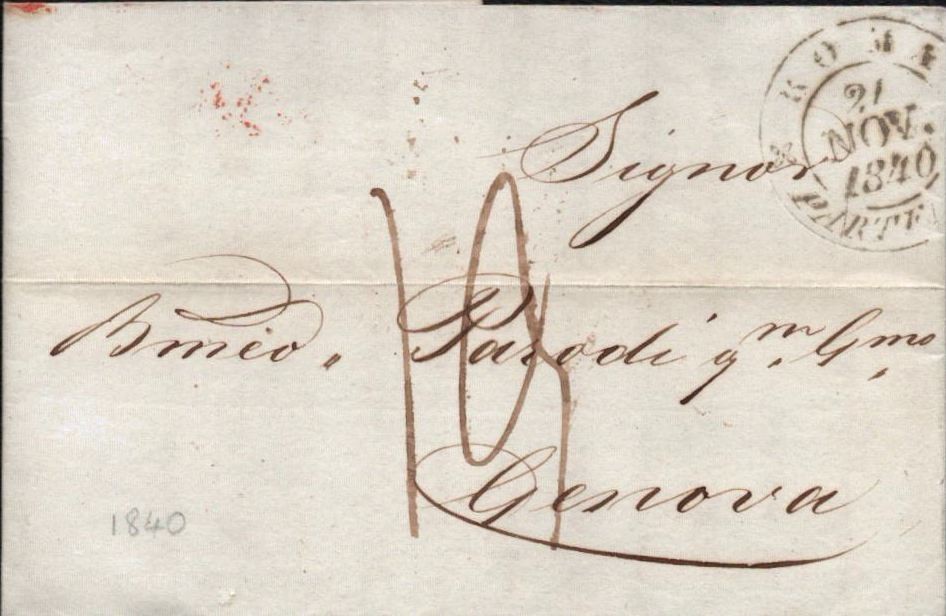 ROMA
21
NOV.
1840
PARTEN
Signor
Bmeo „ Parodi qm „ Gmo „
Genova
1840